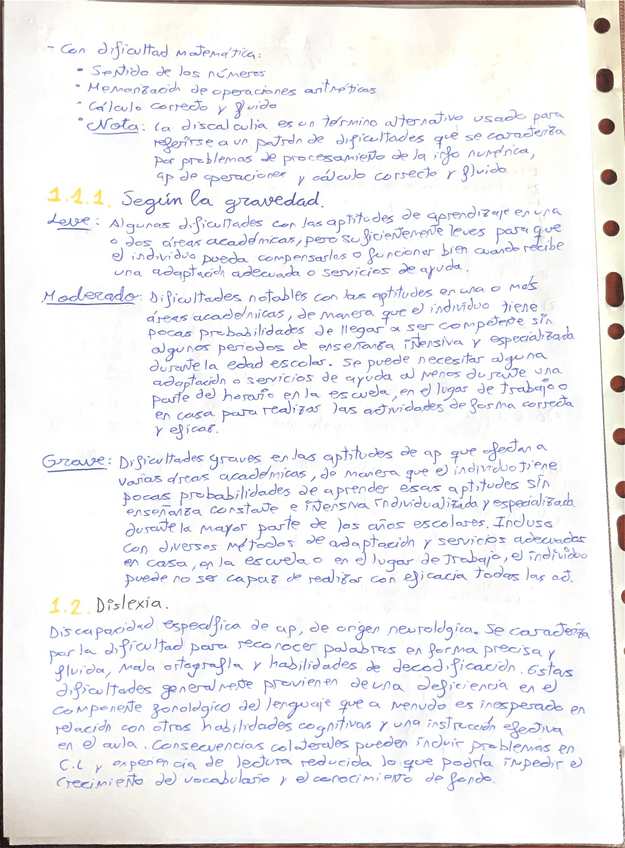 - Con dificultad matemática:
• Sentido de los números
• Memorización de operaciones aritméticas
• Cálculo correcto y fluido
• Nota: la discalculia es un término alternativo usado para
referirse a un patrón de dificultades que se caracteriza
por problemas de procesamiento de la info numérica,
ap de operaciones y cálculo correcto y fluido
1.1.1. Según la gravedad.
Leve: Algunas dificultades con las aptitudes de aprendizaje en una
o dos áreas académicas, pero suficientemente leves para que
el individuo pueda compensarlas o funcionar bien cuando recibe
una adaptación adecuada o servicios de ayuda.
Moderado: Dificultades notables con las aptitudes en una o más
áreas académicas, de manera que el individuo tiene
pocas probabilidades de llegar a ser competente sin
algunos periodos de enseñanza intensiva y especializada
durante la edad escolar. Se puede necesitar alguna
adaptación o servicios de ayuda al menos durante una
parte del horario en la escuela, en el lugar de trabajo o
en casa para realizar las actividades de forma correcta
y eficaz.
Grave: Dificultades graves en las aptitudes de ap que afectan a
varias áreas académicas, de manera que el individuo tiene
pocas probabilidades de aprender esas aptitudes sin
enseñanza constante e intensiva individualizada y especializada
durante la mayor parte de los años escolares. Incluso
con diversos métodos de adaptación y servicios adecuados
en casa, en la escuela o en el lugar de trabajo, el individuo
puede no ser capaz de realizar con eficacia todas las act.
1.2. Dislexia.
Discapacidad específica de ap, de origen neurológica. Se caracteriza
por la dificultad para reconocer palabras en forma precisa y
fluida, mala ortografía y habilidades de decodificación. Estas
dificultades generalmente provienen de una deficiencia en el
componente fonológico del lenguaje que a menudo es inesperado en
relación con otras habilidades cognitivas y una instrucción efectiva
en el aula. Consecuencias colaterales pueden incluir problemas en
C.L y experiencia de lectura reducida lo que podría impedir el
crecimiento del vocabulario y el conocimiento de fondo.